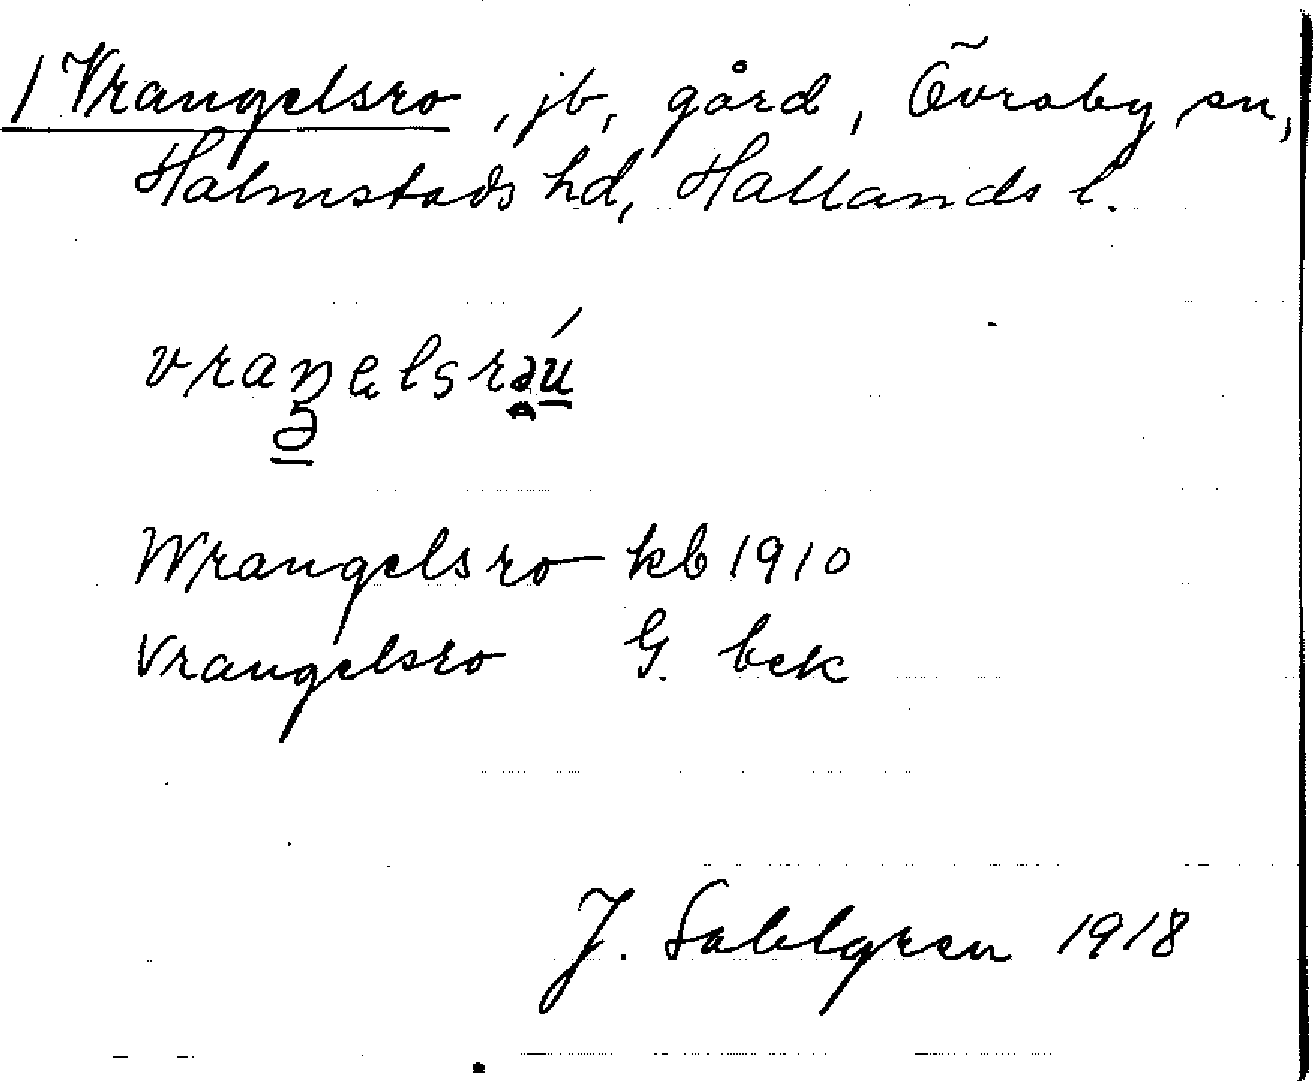 1 Vrangelsro, jb, gård, Övraby sn,
Halmstads hd, Hallands l.
vraŋelsrəú
Wrangelsro kb 1910
Vrangelsro G. bek
J. Sahlgren 1918